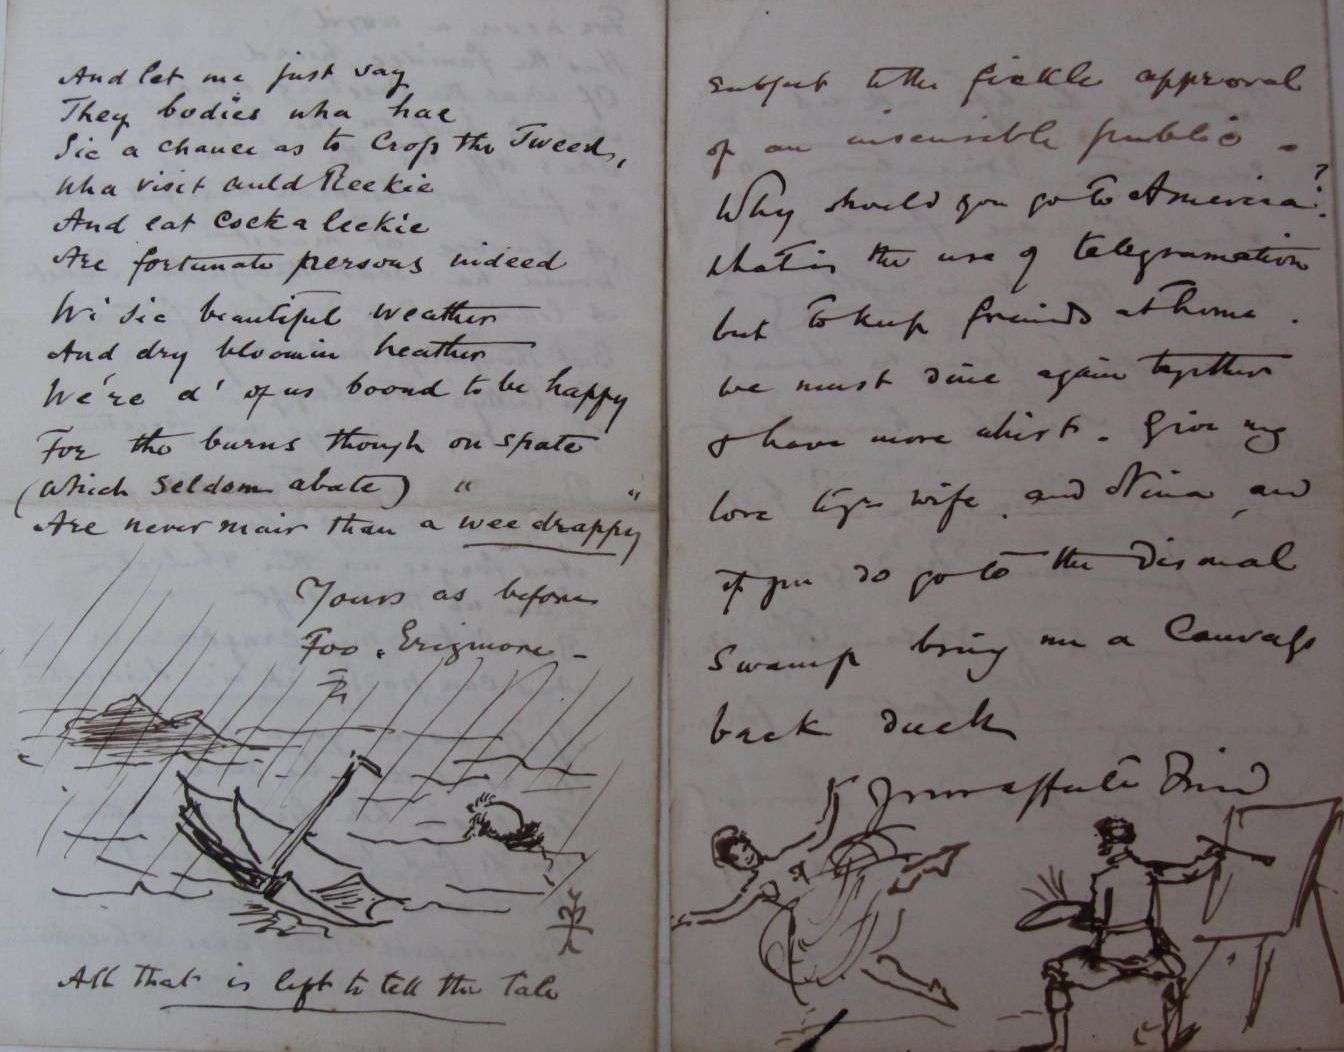 And let me just say
They bodies wha hae
Sic a chance as to Cross the Tweed,
Wha visit auld Reekie
And eat cock a leekie
Are fortunate persons indeed
Wi' sic beautiful weather
And dry bloomin heather
We're a' of us boond to be happy
For the burns though on spate
(which seldom abate) " "
Are never mair than a wee drappy
Yours as before
Foo.
All that is left to tell the Tale
subject to the fickle approval
of an insensible public -
Why should you go to America?
What is the use of telegramation
but to keep friends at home.
We must dine again together
& have more whist. Give my
love to yr wife, and Nina, and
if you do go to the Dismal
Swamp bring me a Canvass
back duck